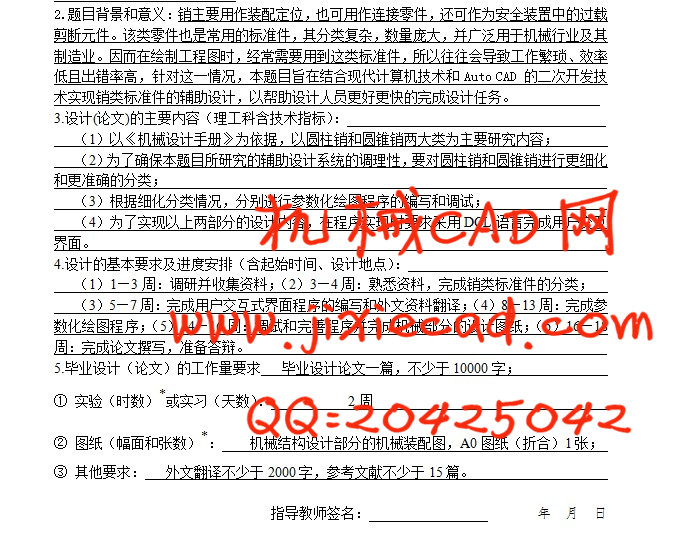 2.题目背景和意义：销主要用作装配定位，也可用作连接零件，还可作为安全装置中的过载
剪断元件。该类零件也是常用的标准件，其分类复杂，数量庞大，并广泛用于机械行业及其
制造业。因而在绘制工程图时，经常需要用到这类标准件，所以往往会导致工作繁琐、效率
低且出错率高，针对这一情况，本题目旨在结合现代计算机技术和Auto CAD 的二次开发技
术实现销类标准件的辅助设计，以帮助设计人员更好更快的完成设计任务。
3.设计(论文)的主要内容（理工科含技术指标）：
（1）以《机械设计手册》为依据，以圆柱销和圆锥销两大类为主要研究内容；
（2）为了确保本题目所研究的辅助设计系统的调理性，要对圆柱销和圆锥销进行更细化
和更准确的分类；
（3）根据细化分类情况，分别进行参数化绘图程序的编写和调试；
（4）为了实现以上两部分的设计内容，在程序实现时要求采用DCL语言完成用户交互
界面。
机械CAD网
4.设计的基本要求及进度安排（含起始时间、设计地点）：
（1）1—3 周：调研并收集资料；（2）3—4 周：熟悉资料，完成销类标准件的分类；
（3）5—7 周：完成用户交互式界面程序的编写和外文资料翻译；（4）8—13 周：完成参
数化绘图程序；（5） 周：调试和完善程序并完成机械部分的设计图纸；（6）16—
周：完成论文撰写，准备答辩。
www.jixiecad.com
5.毕业设计（论文）的工作量要求 毕业设计论文一篇，不少于 10000 字；
① 实验（时数）*或实习（天数）： 2 周
QQ=20425042
② 图纸（幅面和张数）*： 机械结构设计部分的机械装配图，A0 图纸（折合）1张；
③ 其他要求： 外文翻译不少于 2000字，参考文献不少于 15 篇。
指导教师签名： 年 月 日